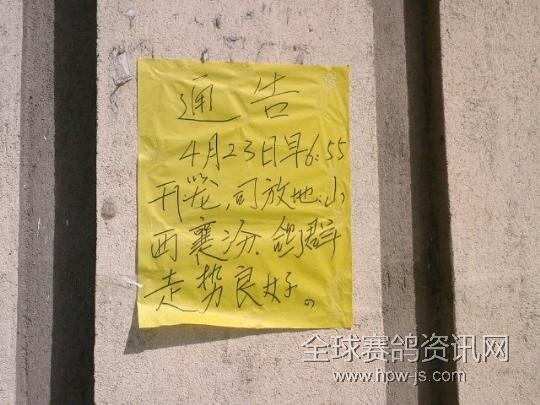 通告
4月23日早6:55
开笼,司放地:山
西襄汾.鸽群
走势良好。
全球赛鸽资讯网
www.hpw-js.com